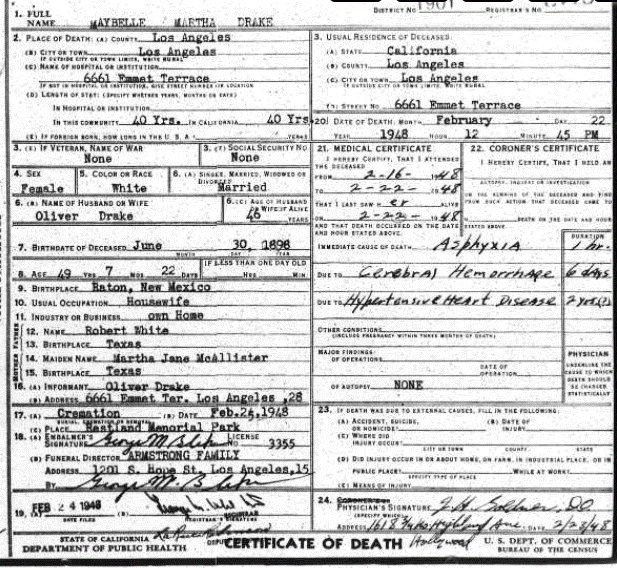 1. FULL NAME MAYBELLE MARTHA DRAKE
DISTRICT NO. 1901 REGISTRAR'S NO.
2. PLACE OF DEATH: (A) COUNTY Los Angeles
(B) CITY OR TOWN Los Angeles
IF OUTSIDE CITY OR TOWN LIMITS, WRITE RURAL
(C) NAME OF HOSPITAL OR INSTITUTION:
6661 Emmet Terrace
IF NOT IN HOSPITAL OR INSTITUTION, GIVE STREET NUMBER OR LOCATION
(D) LENGTH OF STAY: (SPECIFY WHETHER YEARS, MONTHS OR DAYS)
IN HOSPITAL OR INSTITUTION
IN THIS COMMUNITY 40 Yrs. IN CALIFORNIA 40 Yrs.
(E) IF FOREIGN BORN, HOW LONG IN THE U. S. A.? YEARS
3. USUAL RESIDENCE OF DECEASED:
(A) STATE California
(B) COUNTY Los Angeles
(C) CITY OR TOWN Los Angeles
IF OUTSIDE CITY OR TOWN LIMITS, WRITE RURAL
STREET NO. 6661 Emmet Terrace
20. DATE OF DEATH: MONTH February DAY 22
YEAR 1948 HOUR 12 MINUTE 45 PM
3. (E) IF VETERAN, NAME OF WAR
None
3. (F) SOCIAL SECURITY NO.
None
4. SEX
Female
5. COLOR OR RACE
White
6. (A) SINGLE, MARRIED, WIDOWED OR DIVORCED
Married
6. (B) NAME OF HUSBAND OR WIFE
Oliver Drake
6. (C) AGE OF HUSBAND OR WIFE IF ALIVE
46 YEARS
7. BIRTHDATE OF DECEASED June 30, 1898
MONTH DAY YEAR
8. AGE 49 YRS 7 MOS 22 DAYS
IF LESS THAN ONE DAY OLD
HRS MIN
9. BIRTHPLACE Raton, New Mexico
10. USUAL OCCUPATION Housewife
11. INDUSTRY OR BUSINESS own Home
FATHER
12. NAME Robert White
13. BIRTHPLACE Texas
MOTHER
14. MAIDEN NAME Martha Jane McAllister
15. BIRTHPLACE Texas
16. (A) INFORMANT Oliver Drake
(B) ADDRESS 6661 Emmet Ter. Los Angeles ,28
17. (A) Cremation (B) DATE Feb.24,1948
BURIAL, CREMATION OR REMOVAL
(C) PLACE Restland Memorial Park
18. (A) EMBALMER'S SIGNATURE LICENSE 3355
(B) FUNERAL DIRECTOR ARMSTRONG FAMILY
ADDRESS 1201 S. Hope St, Los Angeles,15
BY
19. (A) FEB 24 1948 (B)
DATE FILED REGISTRAR'S SIGNATURE
21. MEDICAL CERTIFICATE
I HEREBY CERTIFY, THAT I ATTENDED THE DECEASED
FROM 2-16- 1948
TO 2-22- 1948
THAT I LAST SAW H er ALIVE
ON 2-22- 1948
AND THAT DEATH OCCURRED ON THE DATE AND HOUR STATED ABOVE.
22. CORONER'S CERTIFICATE
I HEREBY CERTIFY, THAT I HELD AN
AUTOPSY, INQUEST OR INVESTIGATION
ON THE REMAINS OF THE DECEASED AND FIND FROM SUCH ACTION THAT DECEASED CAME TO
DEATH ON THE DATE AND HOUR STATED ABOVE.
DURATION
IMMEDIATE CAUSE OF DEATH Asphyxia 1 hr.
DUE TO Cerebral Hemorrhage 6 days
DUE TO Hypertensive Heart Disease 2 yrs(?)
OTHER CONDITIONS
(INCLUDE PREGNANCY WITHIN THREE MONTHS OF DEATH)
MAJOR FINDINGS:
OF OPERATIONS
DATE OF OPERATION
OF AUTOPSY NONE
PHYSICIAN
UNDERLINE THE CAUSE TO WHICH DEATH SHOULD BE CHARGED STATISTICALLY
23. IF DEATH WAS DUE TO EXTERNAL CAUSES, FILL IN THE FOLLOWING:
(A) ACCIDENT, SUICIDE, OR HOMICIDE (B) DATE OF INJURY
(C) WHERE DID INJURY OCCUR?
CITY OR TOWN COUNTY STATE
(D) DID INJURY OCCUR IN OR ABOUT HOME, ON FARM, IN INDUSTRIAL PLACE, OR IN
PUBLIC PLACE? WHILE AT WORK?
SPECIFY TYPE OF PLACE
(E) MEANS OF INJURY
24. CORONER'S OR
PHYSICIAN'S SIGNATURE
(SPECIFY WHICH)
ADDRESS 1618 Highland Ave. DATE 2/23/48
Hollywood
STATE OF CALIFORNIA
DEPARTMENT OF PUBLIC HEALTH
CERTIFICATE OF DEATH
U. S. DEPT. OF COMMERCE
BUREAU OF THE CENSUS